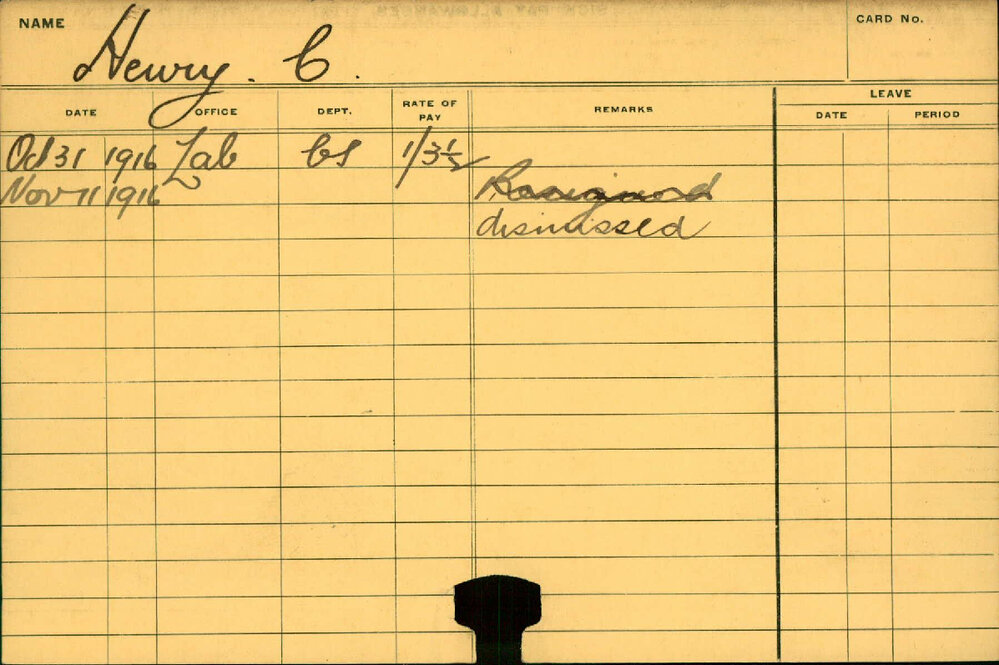 NAME Henry. C. CARD No.
LEAVE
DATE OFFICE DEPT. RATE OF PAY REMARKS DATE PERIOD
Oct 31 1916 Lab CS 1/3½
Nov 11 1916 Resigned
dismissed